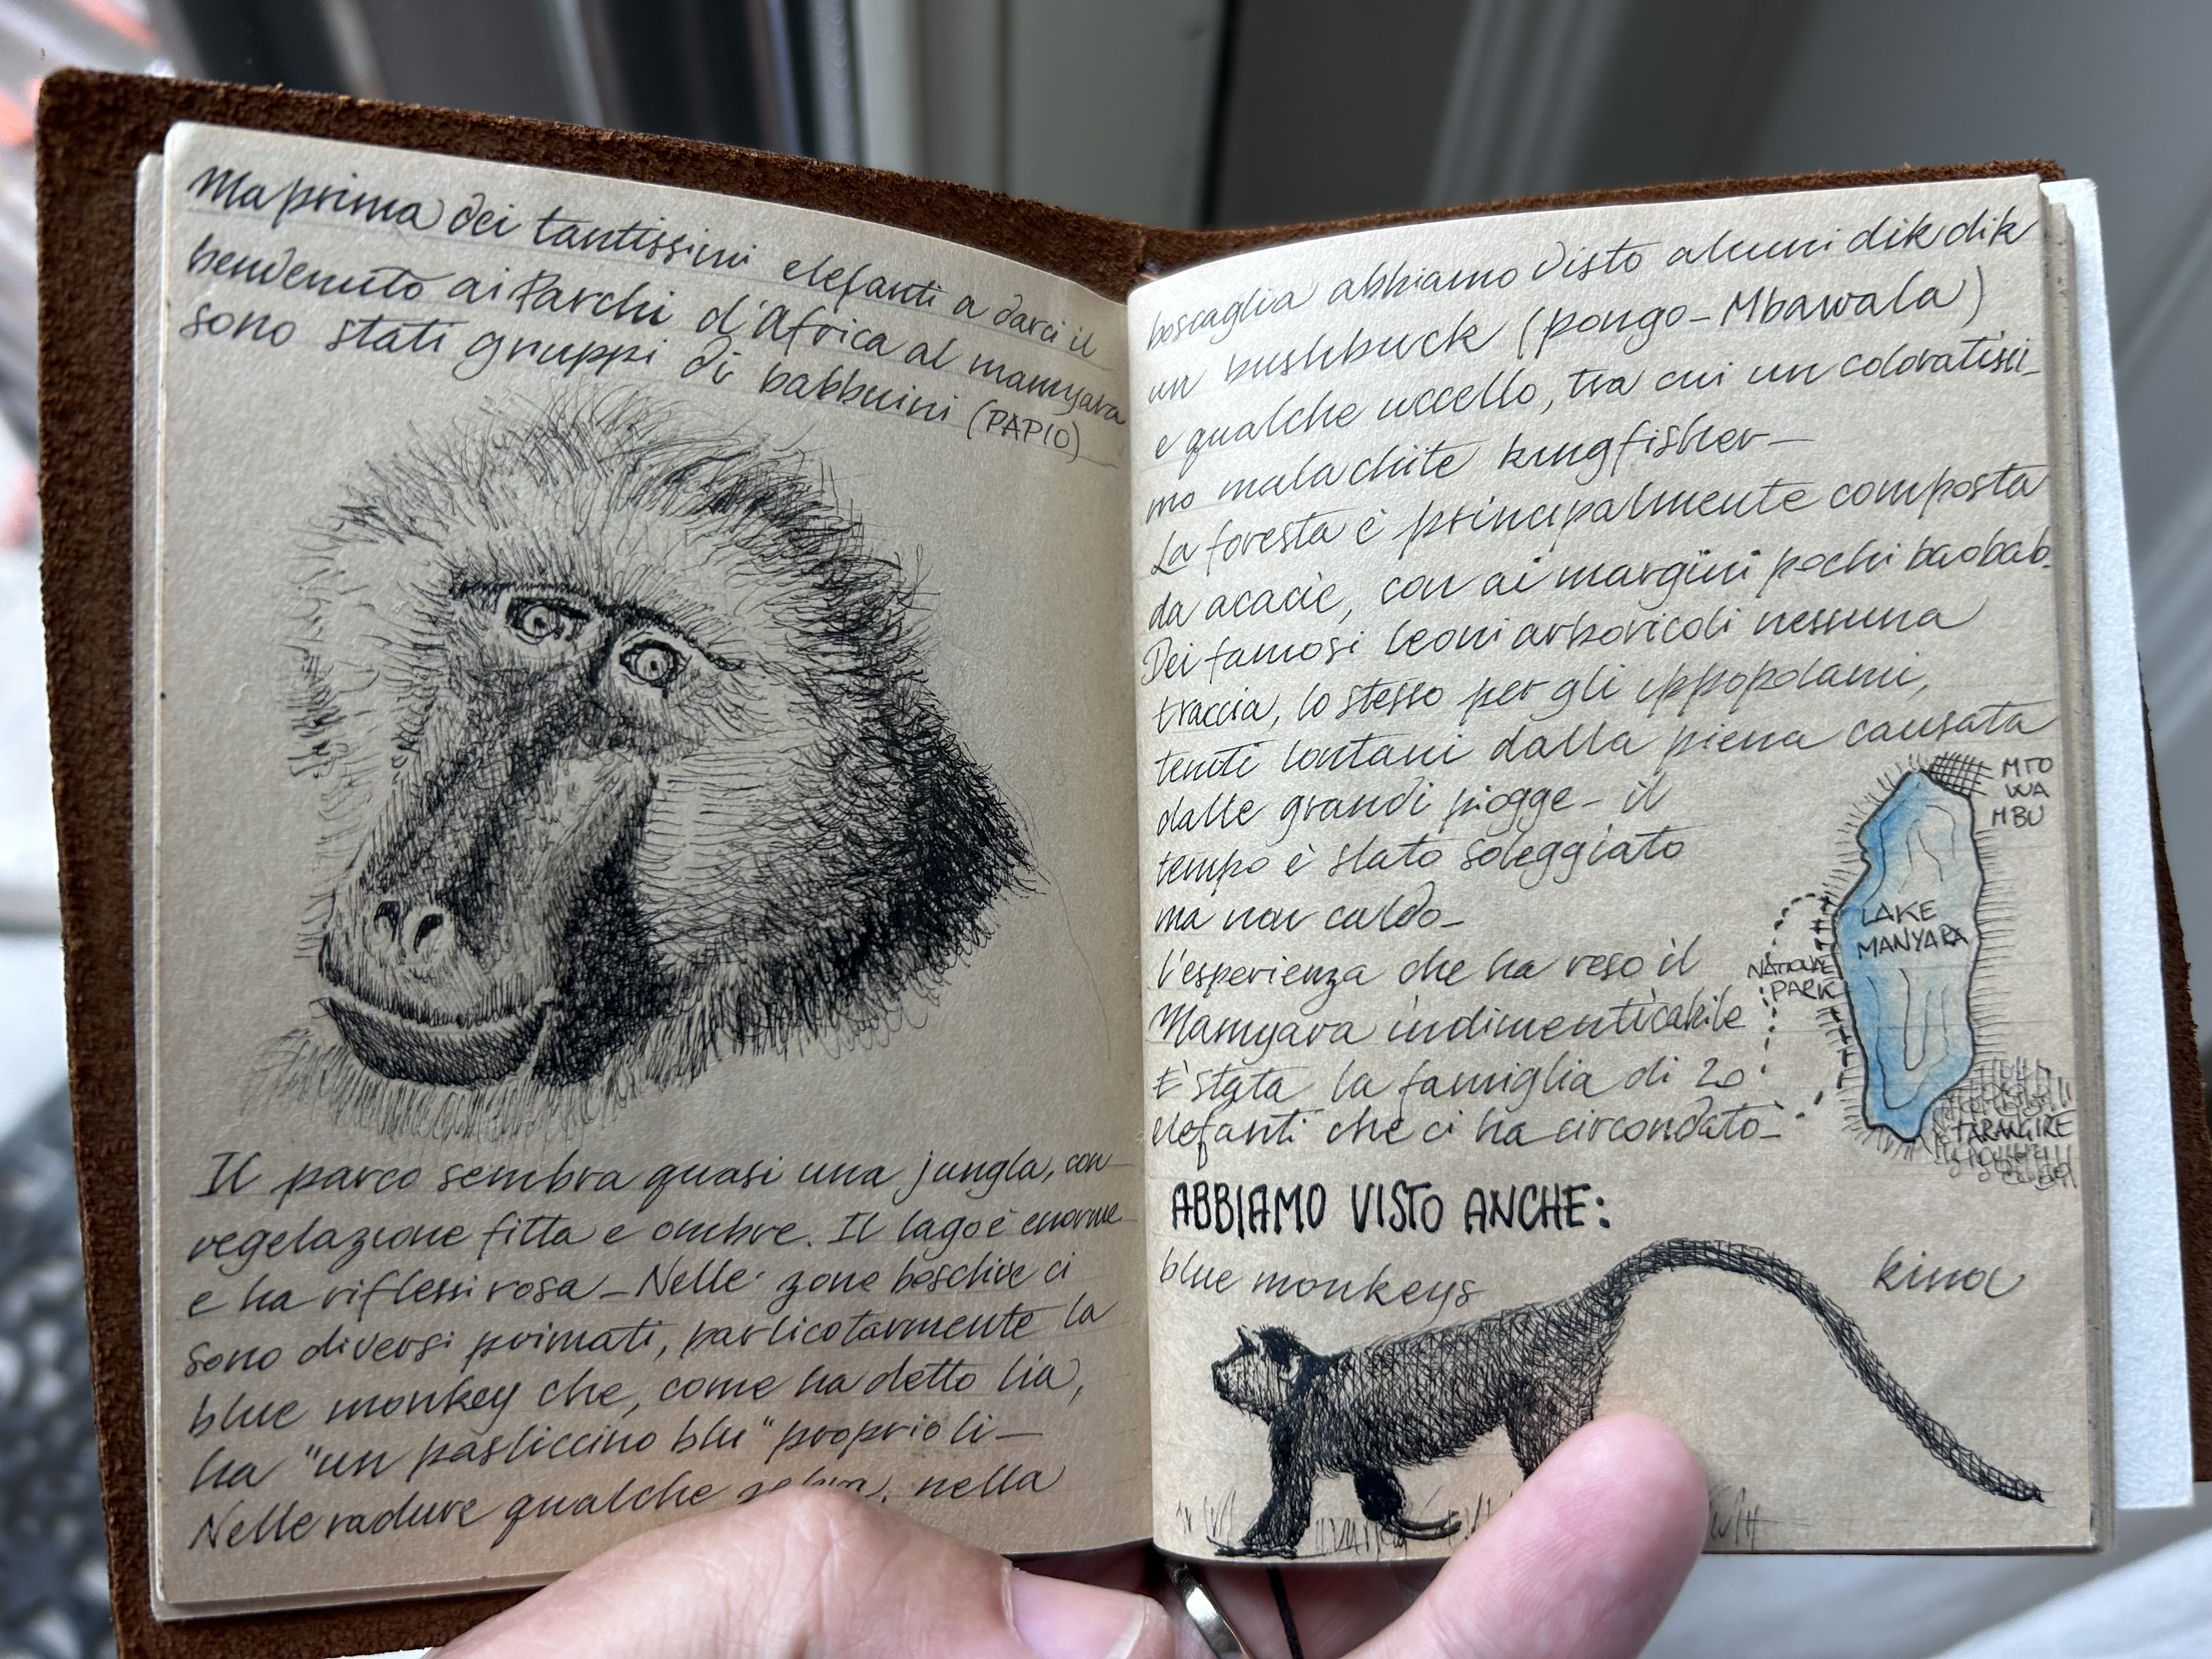 Ma prima dei tantissimi elefanti a darci il
benvenuto ai Parchi d'Africa al manyara
sono stati gruppi di babbuini (PAPIO)
Il parco sembra quasi una jungla, con
vegetazione fitta e ombre. Il lago è enorme
e ha riflessi rosa – Nelle zone boschive ci
sono diversi primati, particolarmente la
blue monkey che, come ha detto Lia,
ha "un pasticcino blu" proprio lì –
Nelle radure qualche zebra, nella
boscaglia abbiamo visto alcuni dik dik
un bushbuck (pongo – Mbawala)
e qualche uccello, tra cui un coloratissi–
mo malachite kingfisher –
La foresta è principalmente composta
da acacie, con ai margini pochi baobab.
Dei famosi leoni arboricoli nessuna
traccia, lo stesso per gli ippopotami,
tenuti lontani dalla piena causata
dalle grandi piogge – il
tempo è stato soleggiato
ma non caldo –
l'esperienza che ha reso il
Manyara indimenticabile
È stata la famiglia di 20
elefanti che ci ha circondato –
MTO
WA
MBU
LAKE
MANYARA
NATIONAL
PARK
TARANGIRE
ABBIAMO VISTO ANCHE:
blue monkeys kima